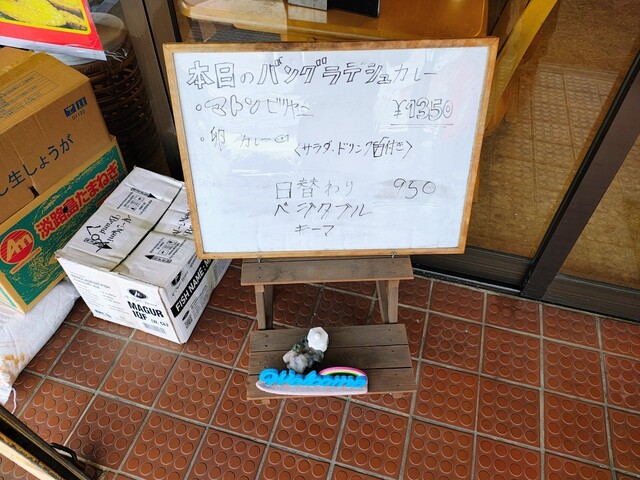 本日のバングラデシュカレー
・マトンビリヤニ ¥1350
・卵 カレー
(サラダ、ドリンク付き)
日替わり 950
ベジタブル
キーマ
し生しょうが
淡路島たまねぎ
FISH NAME:
MAGUR
IQF